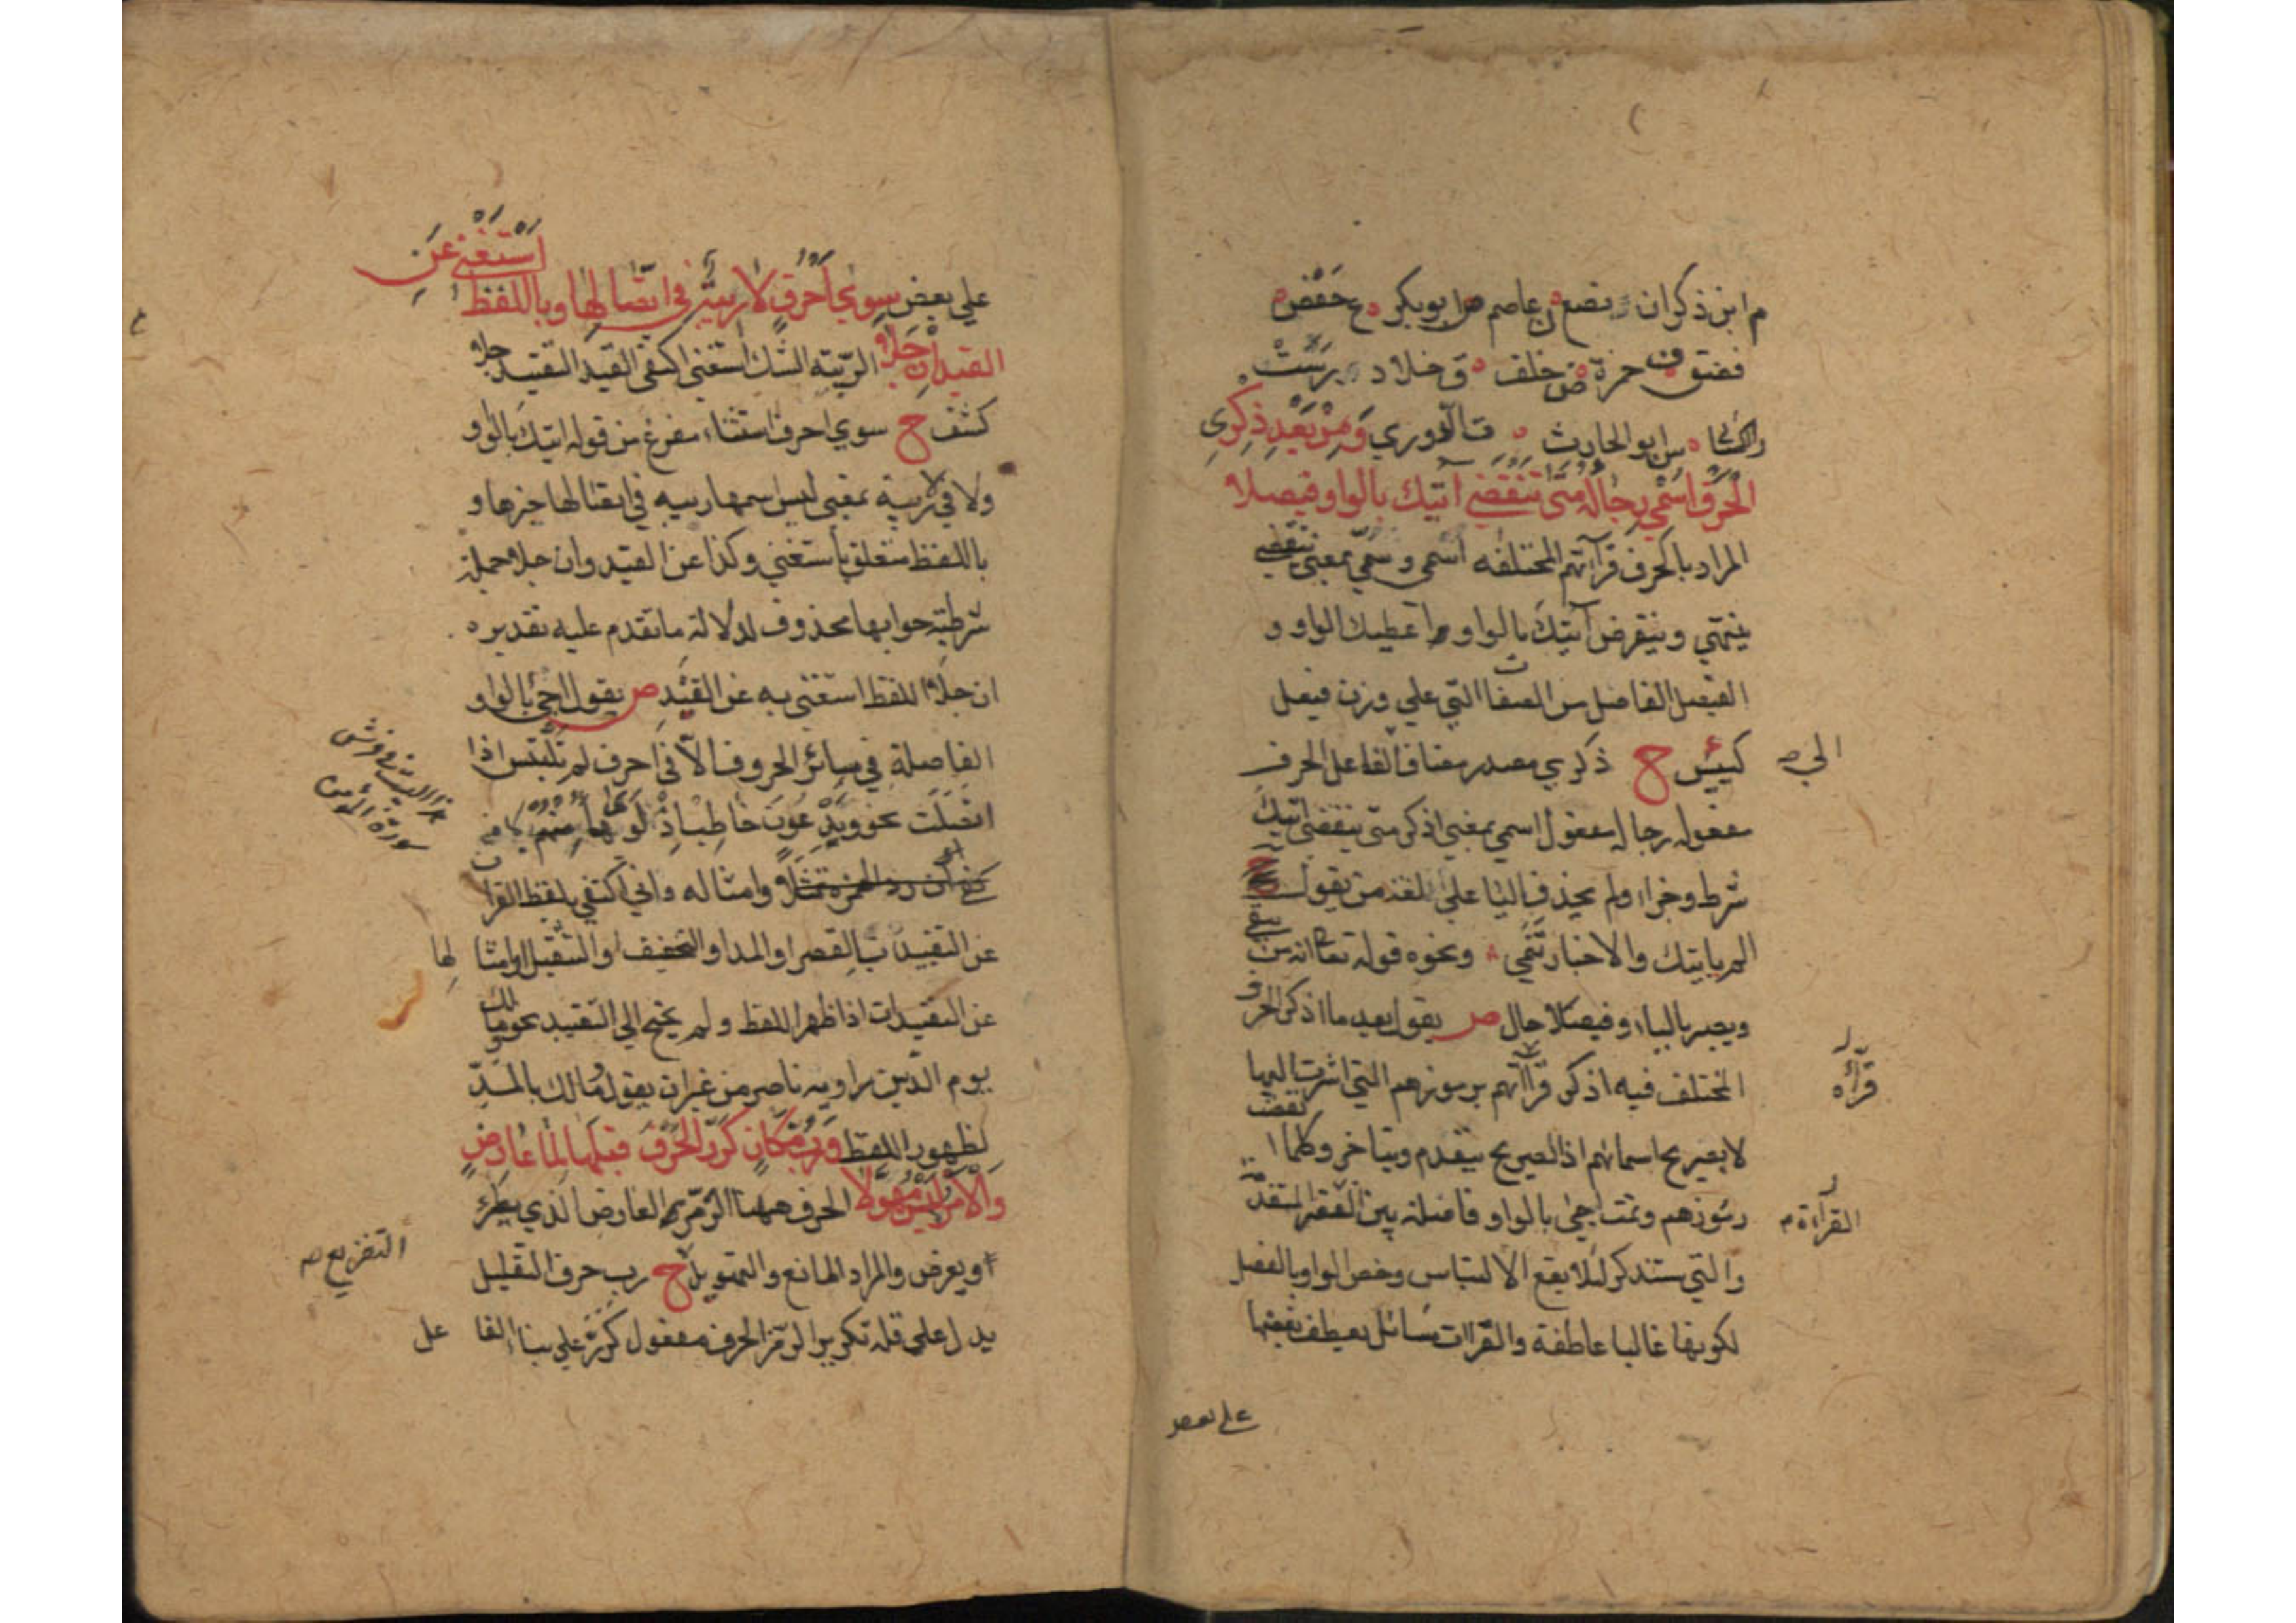 م ابن ذكوان نصع ن عاصم ص ابو بكر ع حفص
فضق ف حمزة ض خلف ق خلاد رست
ر الكسائي س ابو الحارث ت الدوري وَمِنْ بَعْدِ ذِكْرِي
الحَرْفَ اُسْمِي رِجَالَهُ مَتَى تَنْقَضِي آتيك بالواو فيصلا
المراد بالحرف قرآتهم المختلفه اسمى وسمّي بمعنى تنقضي
ينتهي وينقرض آتيك بالواو اعطيك الواو و
الفيصل الفاصل من الصفات التي علي وزن فيعل
كيئس ح ذكري مصدر مضاف الفاعل الحرف
الي صح
مفعوله رجاله مفعول اسمي بمعني اذكر متى ينقضي اتيك
شرط وجزاء ولم يحذف الياء علي لغة من يقول
الم ياتيك والاخبار تنمي ونحوه قوله تعا انه من يتقي
ويصبر بالياء وفيصلا حال ص يقول بعد ما اذكر الحرف
المختلف فيه اذكر قرآآتهم برموزهم التي اشرت اليها
قرآة
لا بصريح اسمائهم اذ الصريح يتقدم ويتاخر وكلما انقضت
رموزهم وتمت اجئ بالواو فاصلة بين القراءة المتقدمة
القرآءة
والتي ستذكر لئلا يقع الالتباس وخص الواو بالفصل
لكونها غالبا عاطفة والقراآت مسائل يعطف بعضها
علي بعض
علي بعض سِوَى أَحْرُفٍ لا رِيبَةٌ في اتّصالها وباللفظ استغني عن
القيد ان جَلا الريبة الشك استغنى اكتفى القيد التقييد جلا
كشف ح سوي احرف استثناء مفرغ من قوله اتيك بالواو
ولا في لا ريبة بمعنى ليس اسمها ريبه في اتصالها خبرها و
باللفظ متعلق باستغني وكذا عن القيد وان جلا جملة
شرطية جوابها محذوف لدلالة ما تقدم عليه تقديره
ان جلا اللفظ استغنى به عن القيد ص يقول اجئ بالواو
الفاصلة في سائر الحروف الا في احرف لم تلتبس اذا
اتصلت نحو ويدعون خاطب اذ لوى
وامثاله واني اكتفي بلفظ القران
عن التقييد بالقصر او المد او التخفيف او التثقيل او امثالها
عن التقييدات اذا ظهر اللفظ ولم يحتج الي التقييد نحو مالك
يوم الدين راويه ناصر من غير ان يقول مالك بالمدّ
لظهور اللفظ وَرُبَّ مَكَانٍ كُرِّرَ الحَرْفُ قَبْلَهَا لِمَا عَارِضٍ
وَالْاَمْرُ لَيْسَ مُهَوِّلَا الحرف ههنا الرمز العارض الذي يطرء
او يعرض والمراد المانع والتهويل ح رب حرف التقليل
التفزيع صح
يدل علي قلة تكرير الرمز الحرف مفعول كرر علي بناء الفاعل